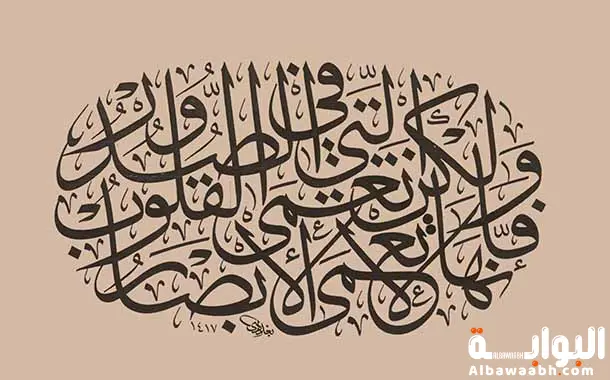 فَإِنَّهَا لَا تَعْمَى الْأَبْصَارُ
وَلَٰكِنْ تَعْمَى الْقُلُوبُ
الَّتِي فِي الصُّدُورِ
١٤١٧
البوابة
Albawaabh.com